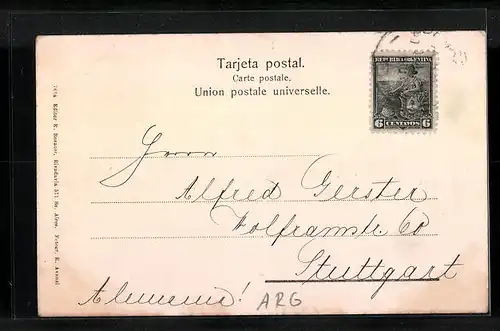 Tarjeta postal.
Carte postale.
Union postale universelle.
REPUBLICA ARGENTINA
6 CENTAVOS 6
Herrn
Alfred Gerster
Wolframstr. 60
Stuttgart
Alemania!
ARG
Editor R. Rosauer, Rivadavia 571 Bs. Aires.